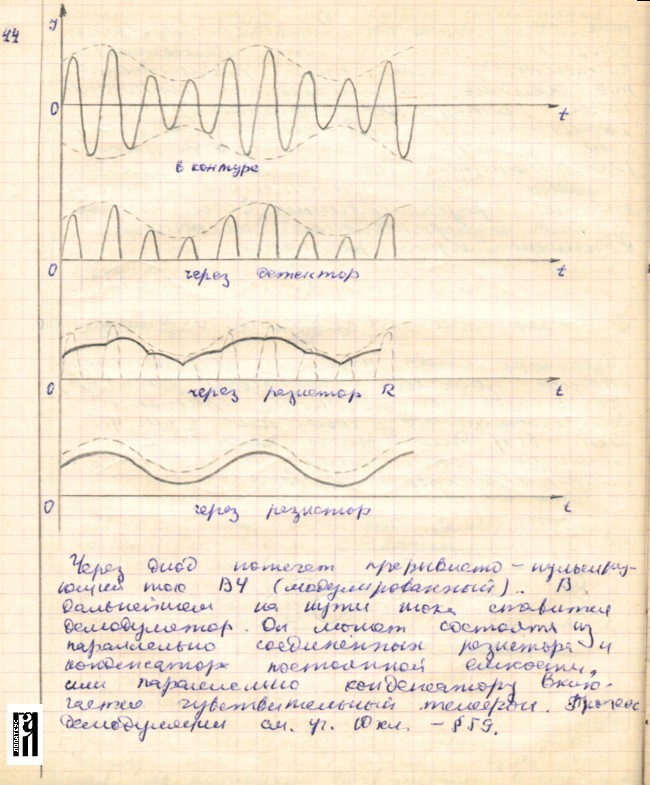 44
y
0
t
в контуре
0
через детектор
t
0
через резистор R
t
0
через резистор
t
Через диод потечет прерывисто - пульсиру-
ющий ток ВЧ (модулированный). В
дальнейшем на пути тока ставится
демодулятор. Он может состоять из
параллельно соединённых резистора и
конденсатора постоянной ёмкости,
или параллельно конденсатору вклю-
чается чувствительный телефон. Процесс
демодуляции см. уч. 10 кл. - § 59.